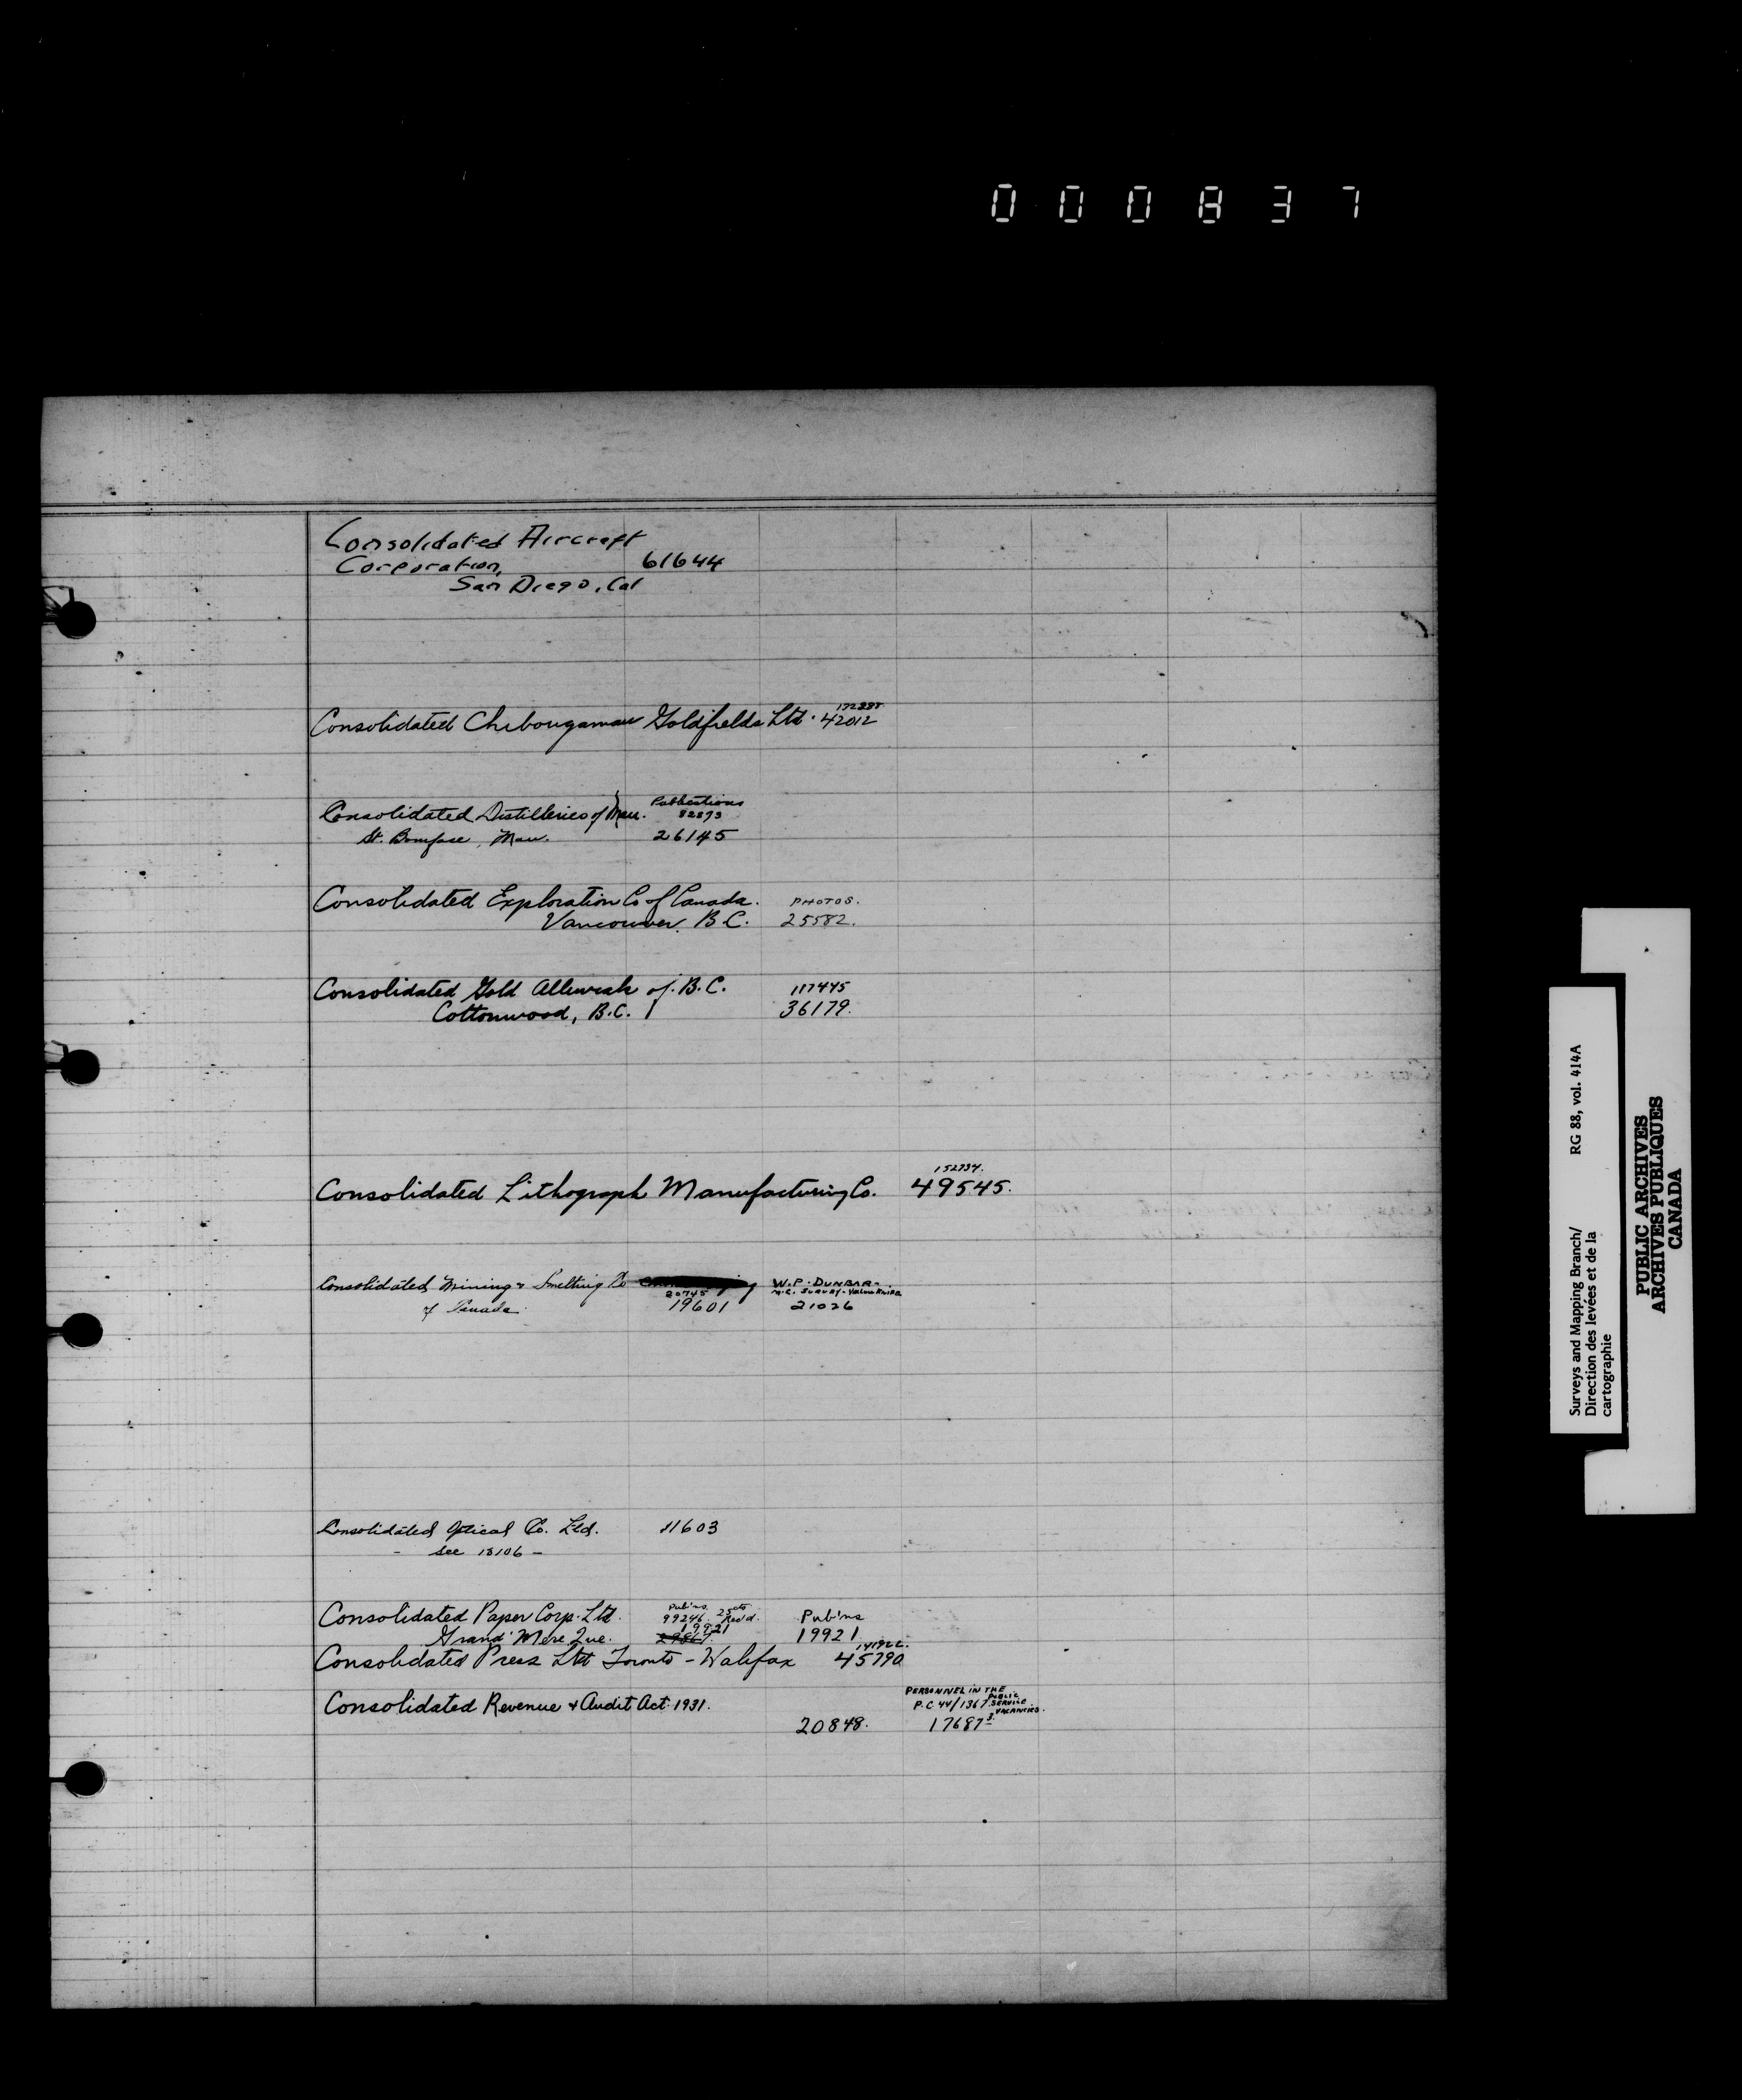 000837
Consolidated Aircraft
Corporation, 61644
San Diego, Cal
Consolidated Chibougamau Goldfields Ltd. 42012
Publications
Consolidated Distilleries of Man. 82893
St. Boniface, Man. 26145
Consolidated Exploration Co of Canada. PHOTOS.
Vancouver, B.C. 25582.
Consolidated Gold Alluvials of B.C. 117445
Cottonwood, B.C. 36179.
152734.
Consolidated Lithograph Manufacturing Co. 49545.
Consolidated Mining & Smelting Co W.P. DUNBAR-
20745 M.C. SURVEY-YELLOWKNIFE
of Canada. 19601 21026
Consolidated Optical Co. Ltd. 11603
- See 18106 -
Pub'ns. 25cts
Consolidated Paper Corp. Ltd. 99246. Rec'd. Pub'ns
19921
Grand' Mere Que. 19921
Consolidated Press Ltd Toronto - Halifax 45790
PERSONNEL IN THE
Consolidated Revenue & Audit Act. 1931. P.C 44/1367 PUBLIC SERVICE VACANCIES.
20848. 17687 3.
Surveys and Mapping Branch/ RG 88, vol. 414A
Direction des levées et de la
cartographie
PUBLIC ARCHIVES
ARCHIVES PUBLIQUES
CANADA